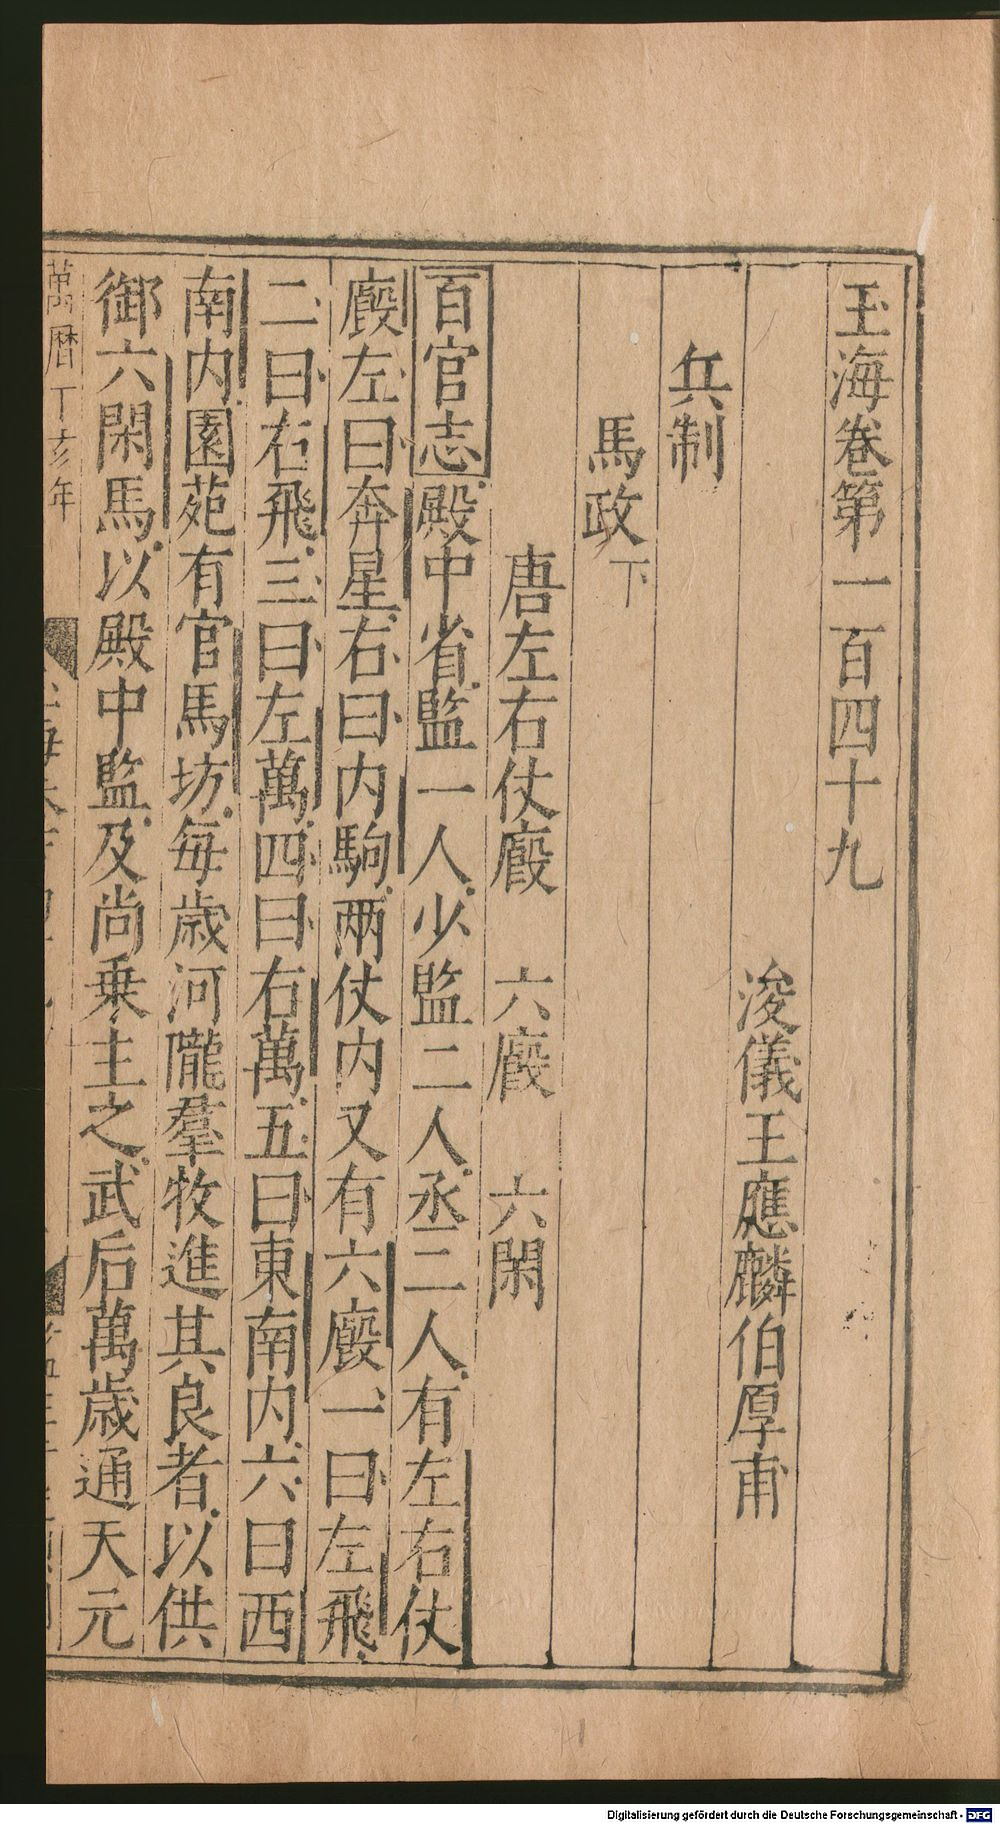 玉海卷第一百四十九
浚儀王應麟伯厚甫
兵制
馬政下
唐左右仗廄 六廄 六閑
百官志殿中省監一人少監二人丞二人有左右仗
廄左曰奔星右曰内駒兩仗内又有六廄一曰左飛
二曰右飛三曰左萬四曰右萬五曰東南内六曰西
南内園苑有官馬坊每歲河隴羣牧進其良者以供
御六閑馬以殿中監及尚乗主之武后萬歲通天元
萬曆丁亥年
Digitalisierung gefördert durch die Deutsche Forschungsgemeinschaft - DFG